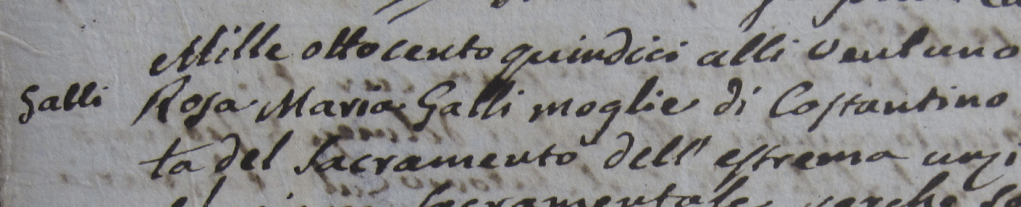 Mille ottocento quindici alli ventuno
Galli
Rosa Maria Galli moglie di Costantino
ta del Sacramento dell' estrema unzi
Sacramentale perche